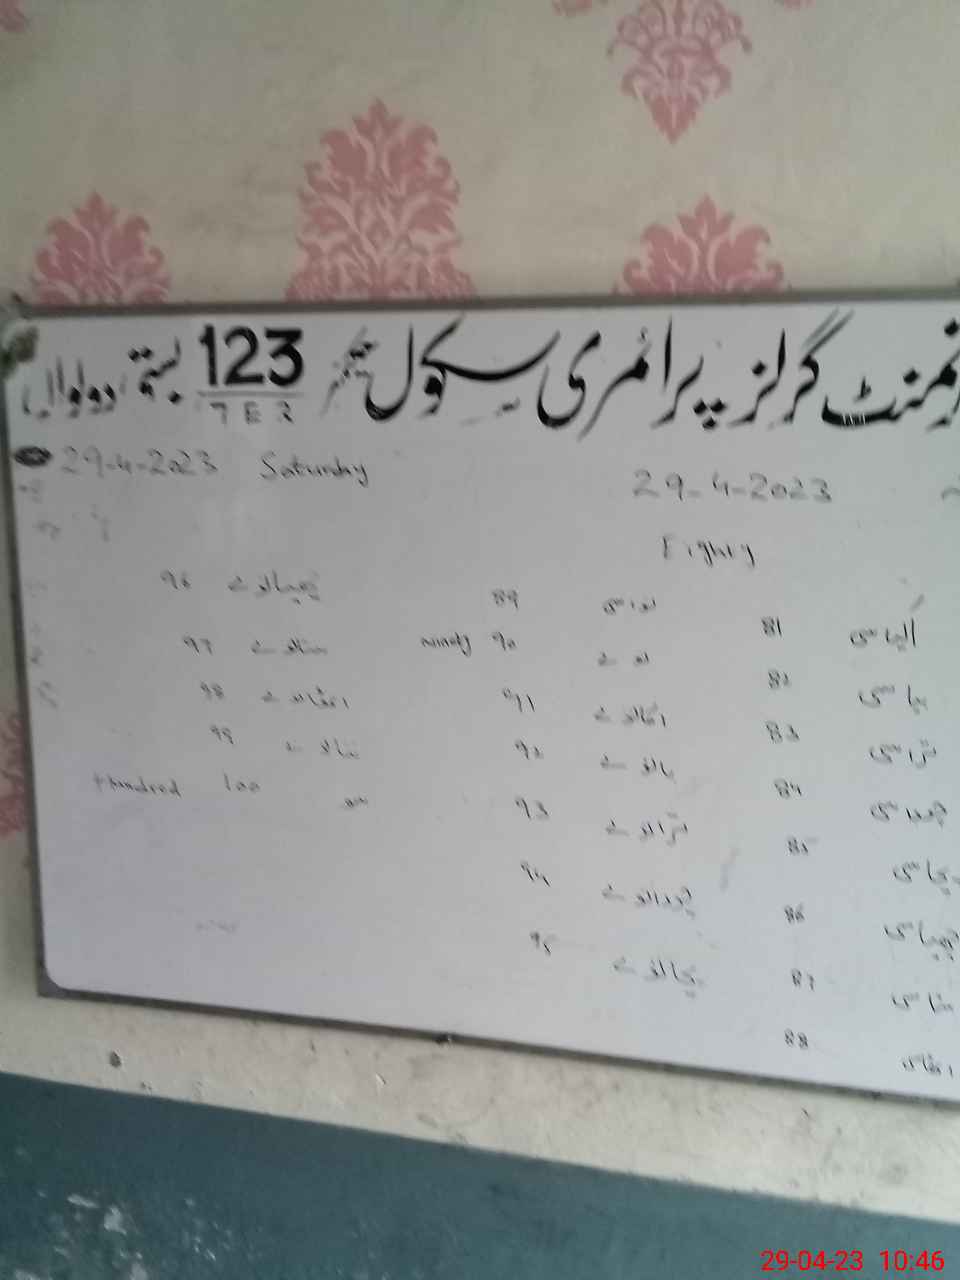 گرلز پرائمری سکول نمبر 123 بستی
7 E R
29-4-2023 Saturday
29-4-2023
Eighty
81 اکیاسی
82 بیاسی
83 تراسی
84 چوراسی
85 پچاسی
86 چھیاسی
87 ستاسی
88 اٹھاسی
89 نواسی
ninety 90 نوے
91 اکانوے
92 بانوے
93 ترانوے
94 چورانوے
95 پچانوے
96 چھیانوے
97 ستانوے
98 اٹھانوے
99 ننانوے
Hundred 100 سو
29-04-23 10:46